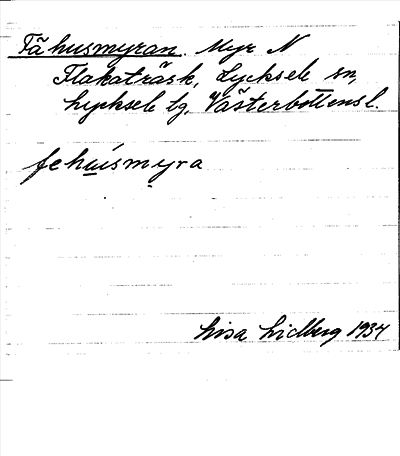 Fähusmyran. Myr N
Flakaträsk, Lycksele sn,
Lycksele lg, Västerbottensl.
fehúsmyra
Lisa Lidberg 1934